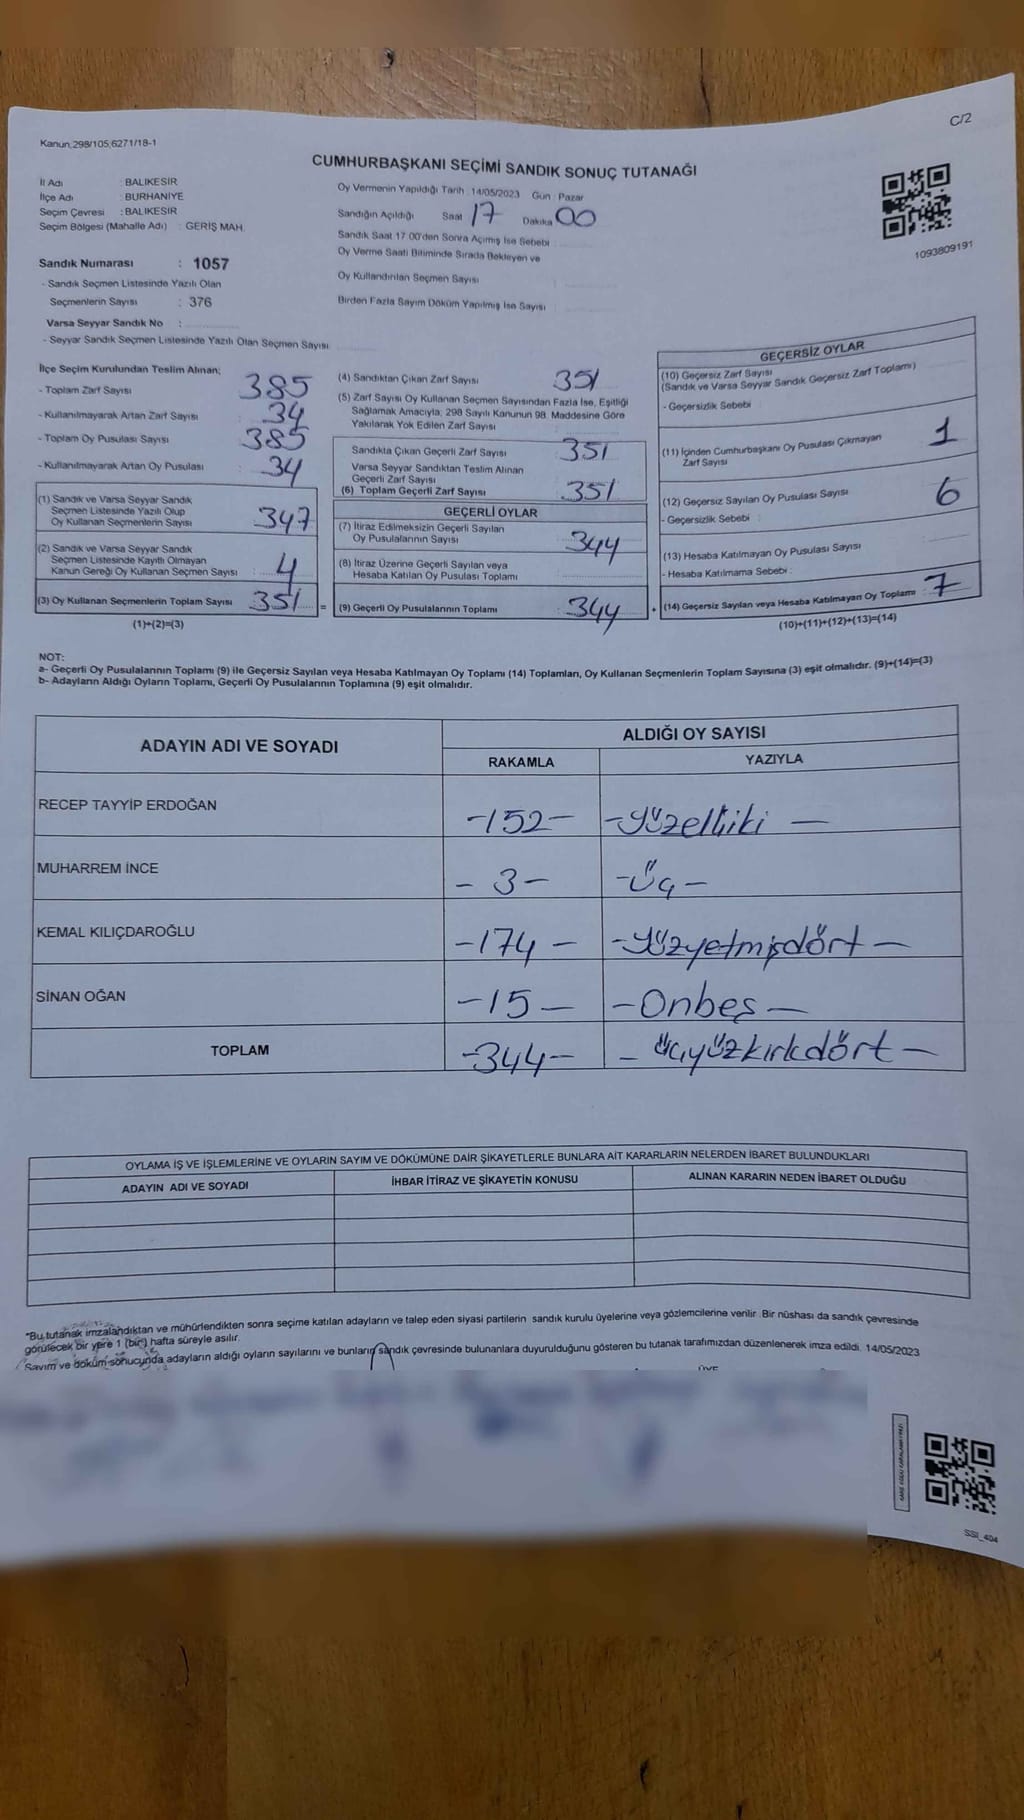 C/2
Kanun,298/105,6271/18-1
CUMHURBAŞKANI SEÇİMİ SANDIK SONUÇ TUTANAĞI
İl Adı : BALIKESİR
İlçe Adı : BURHANİYE
Seçim Çevresi : BALIKESİR
Seçim Bölgesi (Mahalle Adı) : GERİŞ MAH.
Oy Vermenin Yapıldığı Tarih 14/05/2023 Gün : Pazar
Sandığın Açıldığı Saat 17 Dakika 00
Sandık Saat 17 00'den Sonra Açımış İse Sebebi
Oy Verme Saati Bitiminde Sırada Bekleyen ve
Oy Kullandırılan Seçmen Sayısı :
Birden Fazla Sayım Döküm Yapılmış İse Sayısı :
1093809191
Sandık Numarası : 1057
- Sandık Seçmen Listesinde Yazılı Olan
Seçmenlerin Sayısı : 376
Varsa Seyyar Sandık No :
- Seyyar Sandık Seçmen Listesinde Yazılı Olan Seçmen Sayısı
İlçe Seçim Kurulundan Teslim Alınan;
- Toplam Zarf Sayısı 385
- Kullanılmayarak Artan Zarf Sayısı 34
- Toplam Oy Pusulası Sayısı 385
- Kullanılmayarak Artan Oy Pusulası : 34
(1) Sandık ve Varsa Seyyar Sandık
Seçmen Listesinde Yazılı Olup
Oy Kullanan Seçmenlerin Sayısı : 347
(2) Sandık ve Varsa Seyyar Sandık
Seçmen Listesinde Kayıtlı Olmayan
Kanun Gereği Oy Kullanan Seçmen Sayısı : 4
(3) Oy Kullanan Seçmenlerin Toplam Sayısı 351 =
(1)+(2)=(3)
(4) Sandıktan Çıkan Zarf Sayısı 351
(5) Zarf Sayısı Oy Kullanan Seçmen Sayısından Fazla İse, Eşitliği
Sağlamak Amacıyla, 298 Sayılı Kanunun 98. Maddesine Göre
Yakılarak Yok Edilen Zarf Sayısı
Sandıkta Çıkan Geçerli Zarf Sayısı 351
Varsa Seyyar Sandıktan Teslim Alınan
Geçerli Zarf Sayısı
(6) Toplam Geçerli Zarf Sayısı 351
GEÇERLİ OYLAR
(7) İtiraz Edilmeksizin Geçerli Sayılan
Oy Pusulalarının Sayısı : 344
(8) İtiraz Üzerine Geçerli Sayılan veya
Hesaba Katılan Oy Pusulası Toplamı
(9) Geçerli Oy Pusulalarının Toplamı : 344 +
GEÇERSİZ OYLAR
(10) Geçersiz Zarf Sayısı
(Sandık ve Varsa Seyyar Sandık Geçersiz Zarf Toplamı)
- Geçersizlik Sebebi :
(11) İçinden Cumhurbaşkanı Oy Pusulası Çıkmayan
Zarf Sayısı 1
(12) Geçersiz Sayılan Oy Pusulası Sayısı 6
- Geçersizlik Sebebi :
(13) Hesaba Katılmayan Oy Pusulası Sayısı
- Hesaba Katılmama Sebebi :
(14) Geçersiz Sayılan veya Hesaba Katılmayan Oy Toplamı : 7
(10)+(11)+(12)+(13)=(14)
NOT:
a- Geçerli Oy Pusulalarının Toplamı (9) ile Geçersiz Sayılan veya Hesaba Katılmayan Oy Toplamı (14) Toplamları, Oy Kullanan Seçmenlerin Toplam Sayısına (3) eşit olmalıdır. (9)+(14)=(3)
b- Adayların Aldığı Oyların Toplamı, Geçerli Oy Pusulalarının Toplamına (9) eşit olmalıdır.
ADAYIN ADI VE SOYADI ALDIĞI OY SAYISI
RAKAMLA YAZIYLA
RECEP TAYYİP ERDOĞAN -152- -Yüzelliiki-
MUHARREM İNCE -3- -Üç-
KEMAL KILIÇDAROĞLU -174- -Yüzyetmişdört-
SİNAN OĞAN -15- -Onbeş-
TOPLAM -344- -üçyüzkırkdört-
OYLAMA İŞ VE İŞLEMLERİNE VE OYLARIN SAYIM VE DÖKÜMÜNE DAİR ŞİKAYETLERLE BUNLARA AİT KARARLARIN NELERDEN İBARET BULUNDUKLARI
ADAYIN ADI VE SOYADI İHBAR İTİRAZ VE ŞİKAYETİN KONUSU ALINAN KARARIN NEDEN İBARET OLDUĞU
*Bu tutanak imzalandıktan ve mühürlendikten sonra seçime katılan adayların ve talep eden siyasi partilerin sandık kurulu üyelerine veya gözlemcilerine verilir. Bir nüshası da sandık çevresinde
görülecek bir yere 1 (bir) hafta süreyle asılır.
Sayım ve döküm sonucunda adayların aldığı oyların sayılarını ve bunların sandık çevresinde bulunanlara duyurulduğunu gösteren bu tutanak tarafımızdan düzenlenerek imza edildi. 14/05/2023
ÜYE
SSI_404